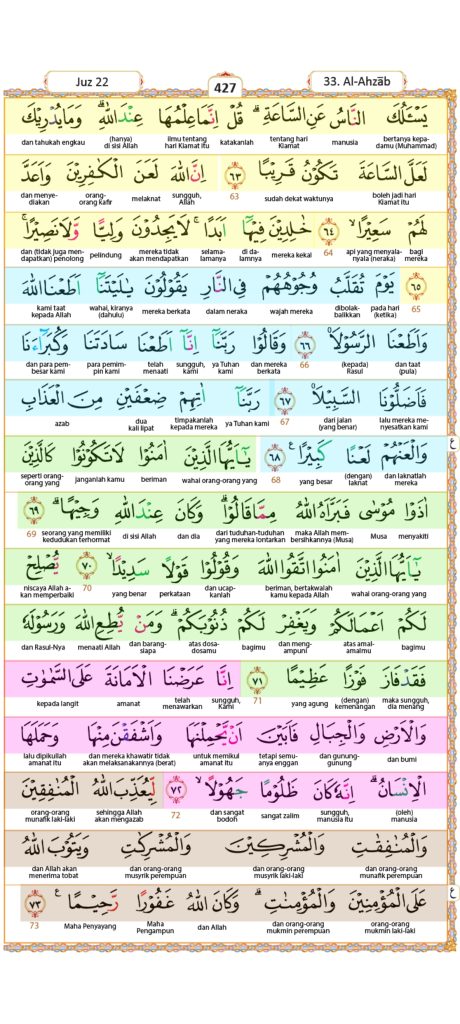 Juz 22
427
33. Al-Ahzāb
يَسْـَٔلُكَ النَّاسُ عَنِ السَّاعَةِۗ قُلْ اِنَّمَا عِلْمُهَا عِنْدَ اللّٰهِۗ وَمَا يُدْرِيْكَ
bertanya kepadamu (Muhammad) manusia tentang hari Kiamat katakanlah ilmu tentang hari Kiamat itu (hanya) di sisi Allah dan tahukah engkau
لَعَلَّ السَّاعَةَ تَكُوْنُ قَرِيْبًا ٦٣ اِنَّ اللّٰهَ لَعَنَ الْكٰفِرِيْنَ وَاَعَدَّ
boleh jadi hari Kiamat itu sudah dekat waktunya 63 sungguh, Allah melaknat orang-orang kafir dan menyediakan
لَهُمْ سَعِيْرًاۙ ٦٤ خٰلِدِيْنَ فِيْهَآ اَبَدًاۚ لَا يَجِدُوْنَ وَلِيًّا وَّلَا نَصِيْرًاۚ
bagi mereka api yang menyala-nyala (neraka) 64 mereka kekal di dalamnya selama-lamanya mereka tidak akan mendapatkan pelindung dan (tidak juga mendapatkan) penolong
٦٥ يَوْمَ تُقَلَّبُ وُجُوْهُهُمْ فِى النَّارِ يَقُوْلُوْنَ يٰلَيْتَنَآ اَطَعْنَا اللّٰهَ
65 pada hari (ketika) dibolak-balikkan wajah mereka dalam neraka mereka berkata wahai, kiranya (dahulu) kami taat kepada Allah
وَاَطَعْنَا الرَّسُوْلَا۠ ٦٦ وَقَالُوْا رَبَّنَآ اِنَّآ اَطَعْنَا سَادَتَنَا وَكُبَرَاۤءَنَا
dan taat (pula) (kepada) Rasul 66 dan mereka berkata ya Tuhan kami sungguh, kami telah menaati para pemimpin kami dan para pembesar kami
فَاَضَلُّوْنَا السَّبِيْلَا۠ ٦٧ رَبَّنَآ اٰتِهِمْ ضِعْفَيْنِ مِنَ الْعَذَابِ
lalu mereka menyesatkan kami dari jalan (yang benar) 67 ya Tuhan kami timpakanlah kepada mereka dua kali lipat azab
وَالْعَنْهُمْ لَعْنًا كَبِيْرًا ࣖ ٦٨ يٰٓاَيُّهَا الَّذِيْنَ اٰمَنُوْا لَا تَكُوْنُوْا كَالَّذِيْنَ
ع
dan laknatlah mereka (dengan) laknat yang besar 68 wahai orang-orang yang beriman janganlah kamu seperti orang-orang yang
اٰذَوْا مُوْسٰى فَبَرَّاَهُ اللّٰهُ مِمَّا قَالُوْاۗ وَكَانَ عِنْدَ اللّٰهِ وَجِيْهًاۗ ٦٩
menyakiti Musa maka Allah membersihkannya (Musa) dari tuduhan-tuduhan yang mereka lontarkan dan dia di sisi Allah seorang yang memiliki kedudukan terhormat 69
يٰٓاَيُّهَا الَّذِيْنَ اٰمَنُوا اتَّقُوا اللّٰهَ وَقُوْلُوْا قَوْلًا سَدِيْدًاۙ ٧٠ يُّصْلِحْ
wahai orang-orang yang beriman, bertakwalah kamu kepada Allah dan ucapkanlah perkataan yang benar 70 niscaya Allah akan memperbaiki
لَكُمْ اَعْمَالَكُمْ وَيَغْفِرْ لَكُمْ ذُنُوْبَكُمْۗ وَمَنْ يُّطِعِ اللّٰهَ وَرَسُوْلَهٗ
bagimu amal-amalmu dan mengampuni bagimu atas dosa-dosamu dan barang siapa menaati Allah dan Rasul-Nya
فَقَدْ فَازَ فَوْزًا عَظِيْمًا ٧١ اِنَّا عَرَضْنَا الْاَمَانَةَ عَلَى السَّمٰوٰتِ
maka sungguh, dia menang (dengan) kemenangan yang agung 71 sungguh, Kami telah menawarkan amanat kepada langit
وَالْاَرْضِ وَالْجِبَالِ فَاَبَيْنَ اَنْ يَّحْمِلْنَهَا وَاَشْفَقْنَ مِنْهَا وَحَمَلَهَا
dan bumi dan gunung-gunung tetapi semuanya enggan untuk memikul amanat itu dan mereka khawatir tidak akan melaksanakannya (berat) lalu dipikullah amanat itu
الْاِنْسَانُۗ اِنَّهٗ كَانَ ظَلُوْمًا جَهُوْلًاۙ ٧٢ لِّيُعَذِّبَ اللّٰهُ الْمُنٰفِقِيْنَ
(oleh) manusia sungguh, manusia itu sangat zalim dan sangat bodoh 72 sehingga Allah akan mengazab orang-orang munafik laki-laki
وَالْمُنٰفِقٰتِ وَالْمُشْرِكِيْنَ وَالْمُشْرِكٰتِ وَيَتُوْبَ اللّٰهُ
dan orang-orang munafik perempuan dan orang-orang musyrik laki-laki dan orang-orang musyrik perempuan dan Allah akan menerima tobat
عَلَى الْمُؤْمِنِيْنَ وَالْمُؤْمِنٰتِۗ وَكَانَ اللّٰهُ غَفُوْرًا رَّحِيْمًا ࣖ ٧٣
ع
orang-orang mukmin laki-laki dan orang-orang mukmin perempuan dan Allah Maha Pengampun Maha Penyayang 73